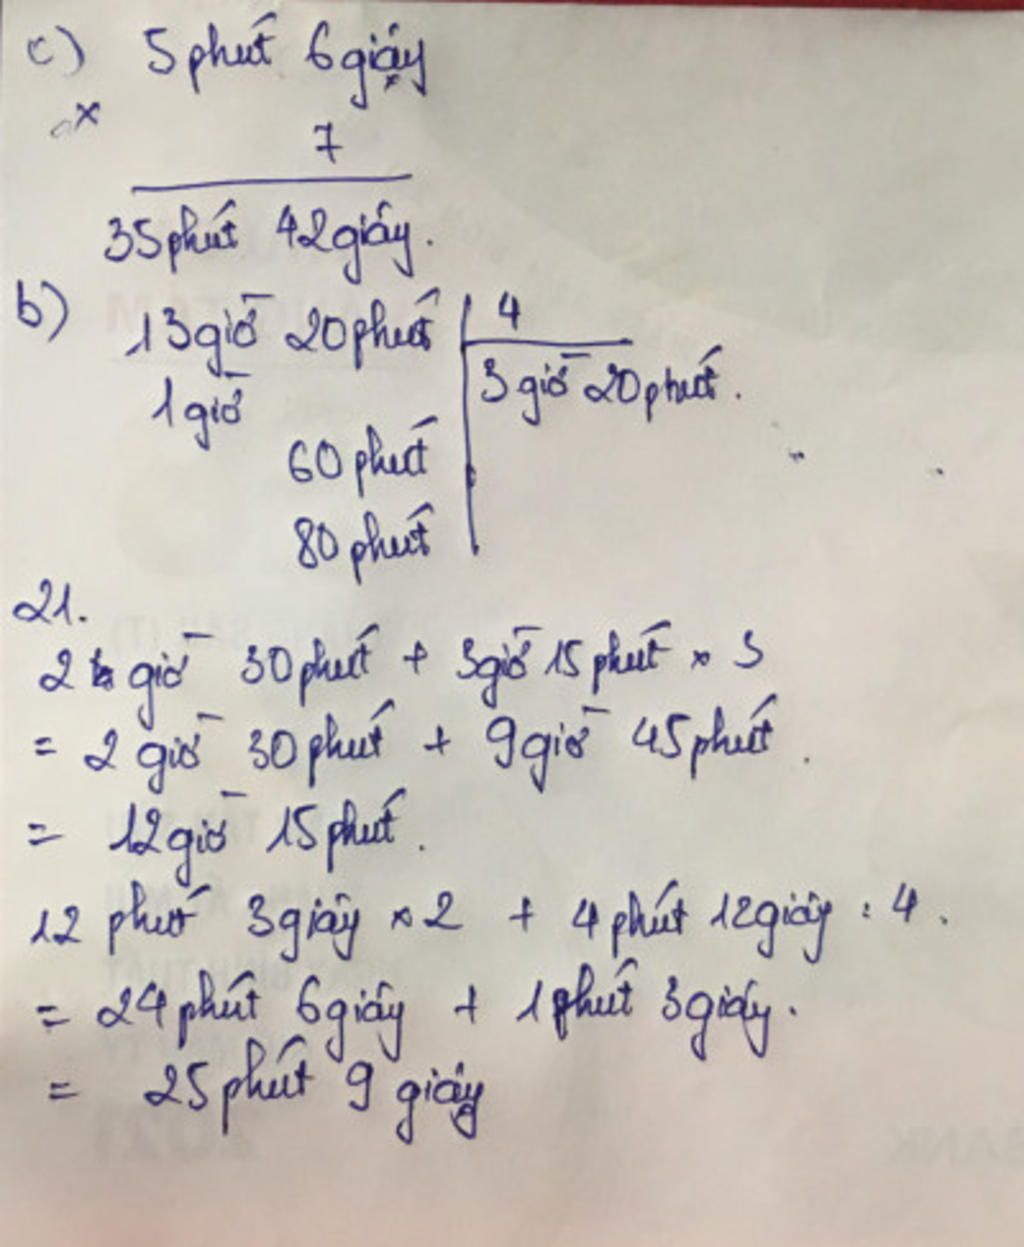 c) 5 phút 6 giây
x
7
35 phút 42 giây.
b) 13 giờ 20 phút 4
1 giờ 3 giờ 20 phút.
60 phút
80 phút
21.
2 giờ 30 phút + 3 giờ 15 phút x 3
= 2 giờ 30 phút + 9 giờ 45 phút.
= 12 giờ 15 phút.
12 phút 3 giây x 2 + 4 phút 12 giây : 4.
= 24 phút 6 giây + 1 phút 3 giây.
= 25 phút 9 giây